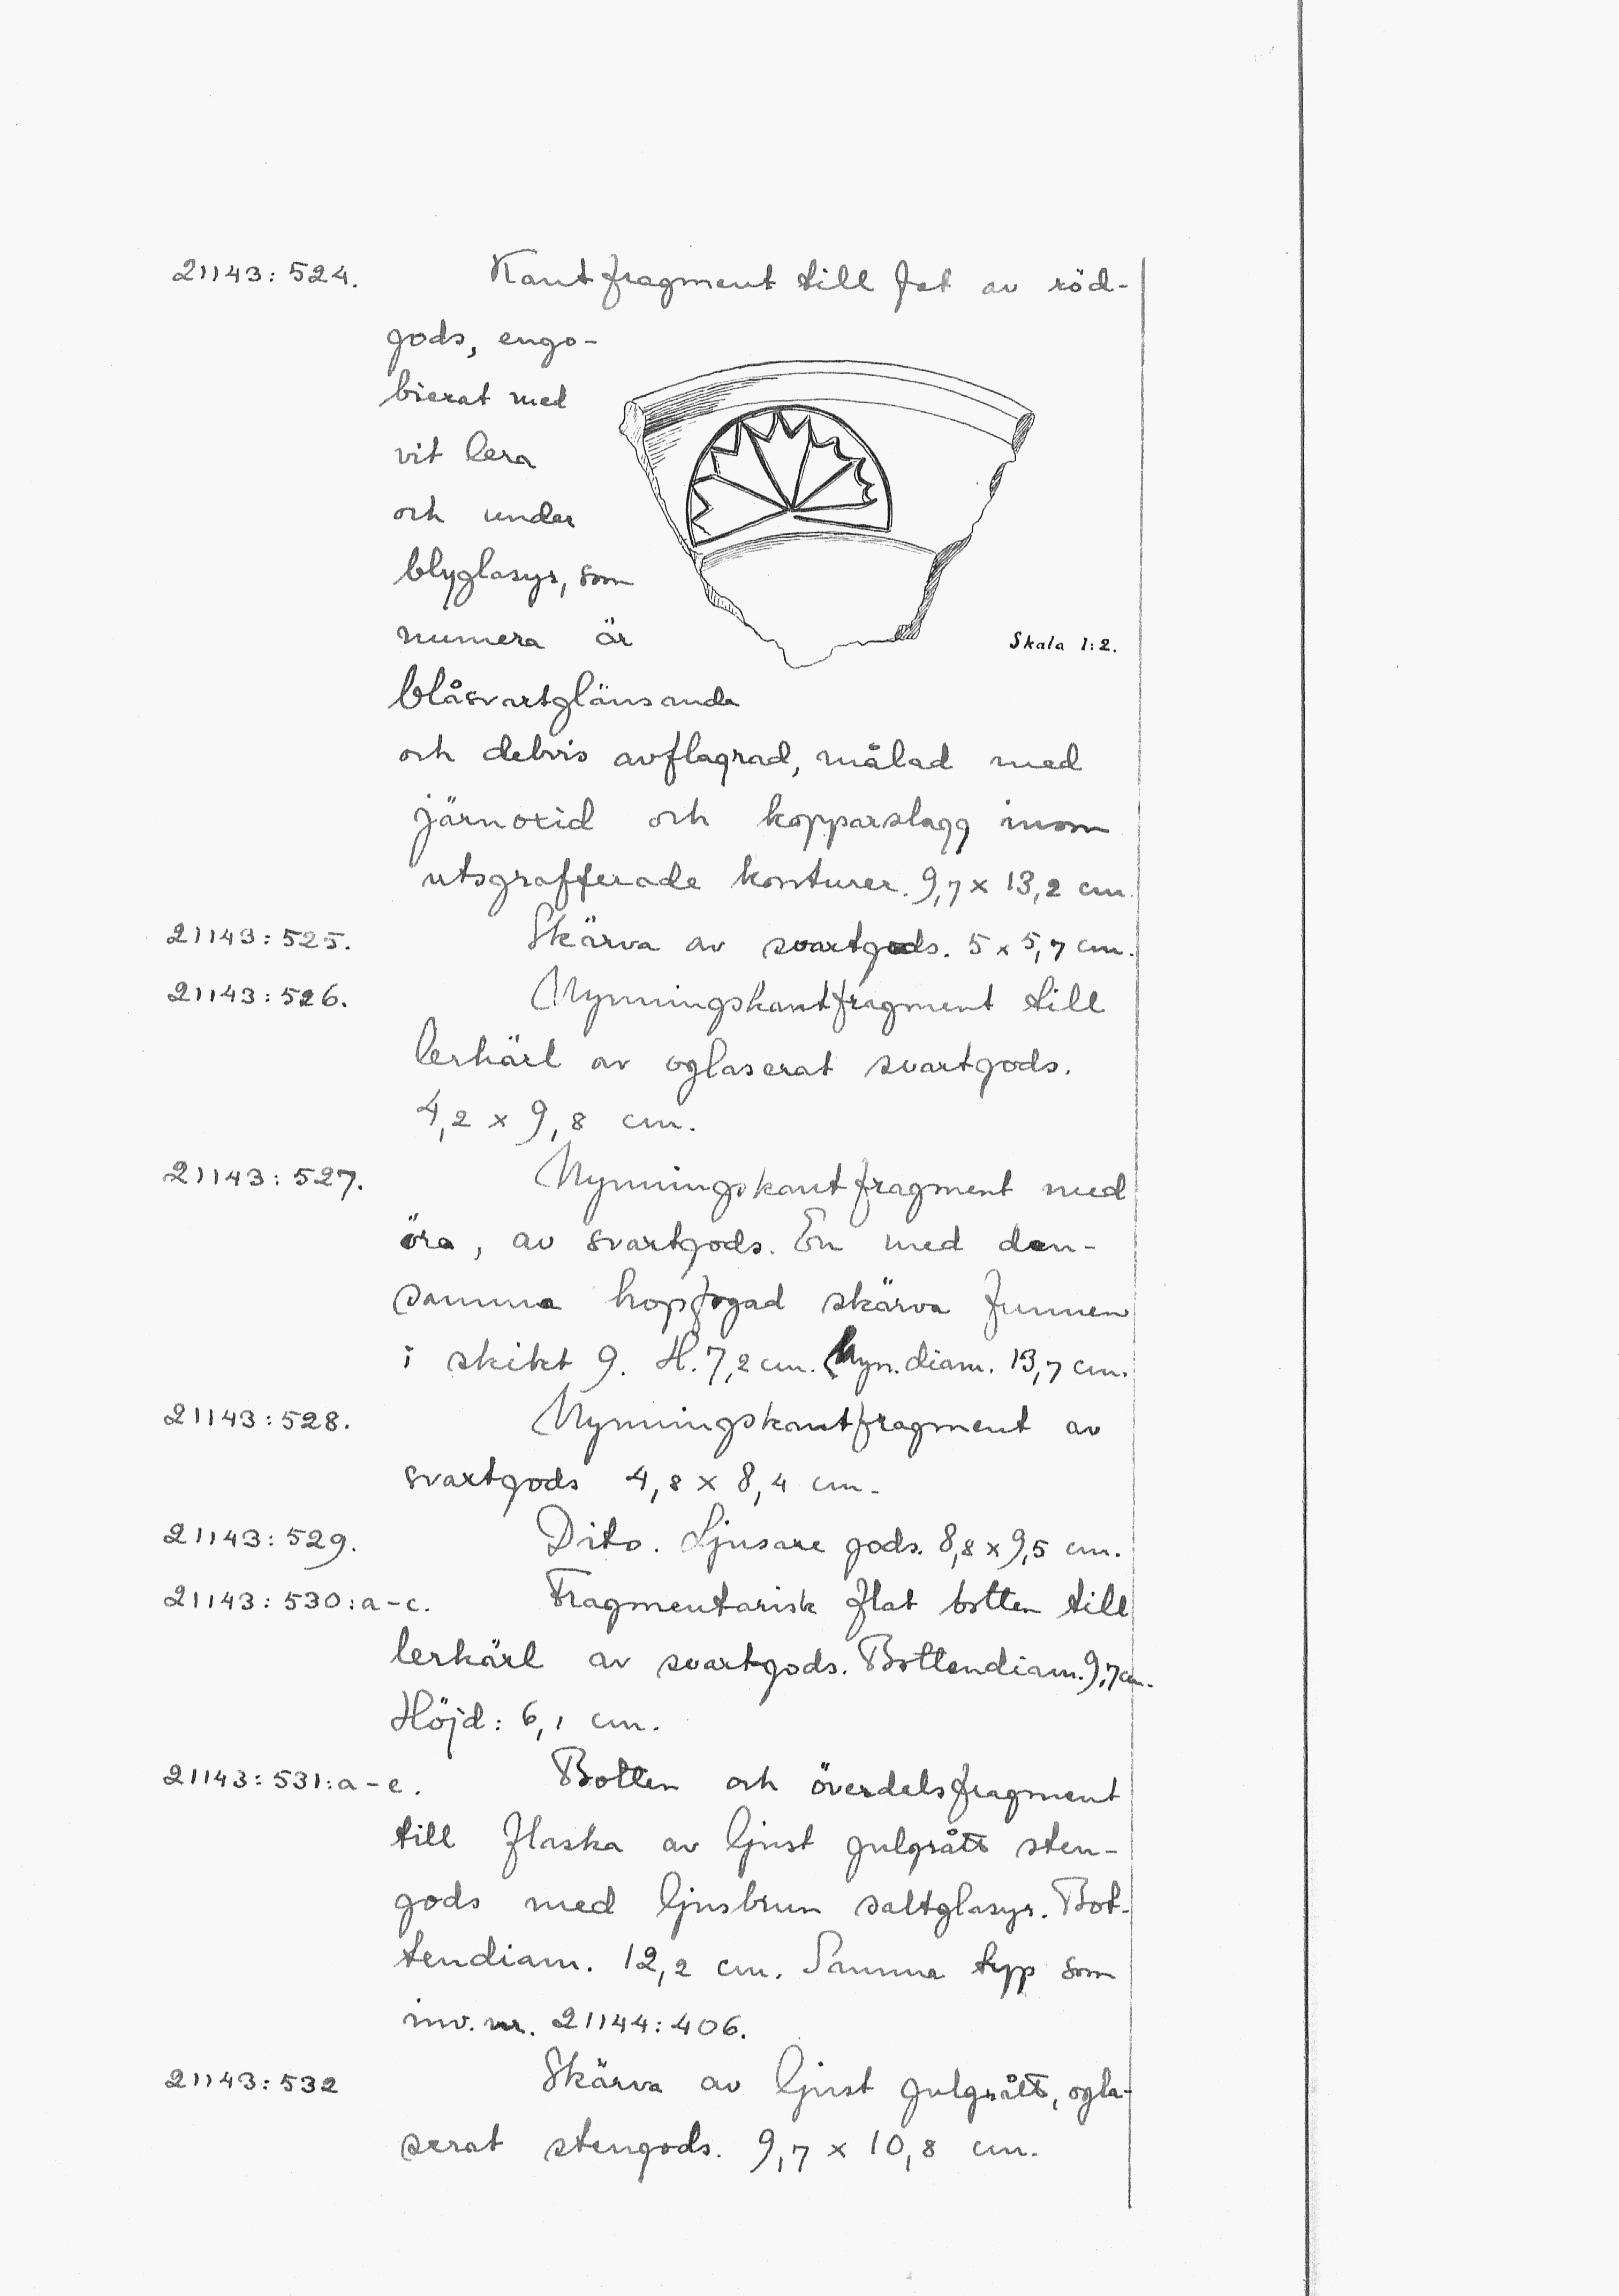 21143:524. Kantfragment till fat av röd-
gods, engo-
bierat med
vit lera
och under
blyglasyr, som
numera är
Skala 1:2.
blåsvartglänsande
och delvis avflagrad, målad med
järnoxid och kopparslagg inom
utsgrafferade konturer. 9,7 x 13,2 cm.
21143:525. Skärva av svartgods. 5 x 5,7 cm.
21143:526. Mynningskantfragment till
lerkärl av oglaserat svartgods.
4,2 x 9,8 cm.
21143:527. Mynningskantfragment med
öra, av svartgods. En med den-
samma hopfogad skärva funnen
i skikt 9. H. 7,2 cm. Myn. diam. 13,7 cm.
21143:528. Mynningskantfragment av
svartgods 4,8 x 8,4 cm.
21143:529. Dito. Ljusare gods. 8,8 x 9,5 cm.
21143:530:a-c. Fragmentarisk flat botten till
lerkärl av svartgods. Bottendiam. 9,7 cm.
Höjd: 6,1 cm.
21143:531:a-e. Botten och överdelsfragment
till flaska av ljust gulgrått sten-
gods med ljusbrun saltglasyr. Bot-
tendiam. 12,2 cm. Samma typ som
inv. nr. 21144:406.
21143:532 Skärva av ljust gulgrått, ogla-
serat stengods. 9,7 x 10,8 cm.